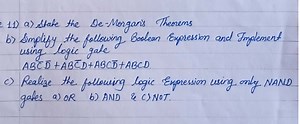 11) a) State the De-Morgan's Theorems
b) Simplify the following Boolean Expression and Implement
using logic gate
ABC̄D̄+ABC̄D+ABCD̄+ABCD
c) Realize the following logic Expression using only NAND
gates a) OR b) AND & c) NOT.